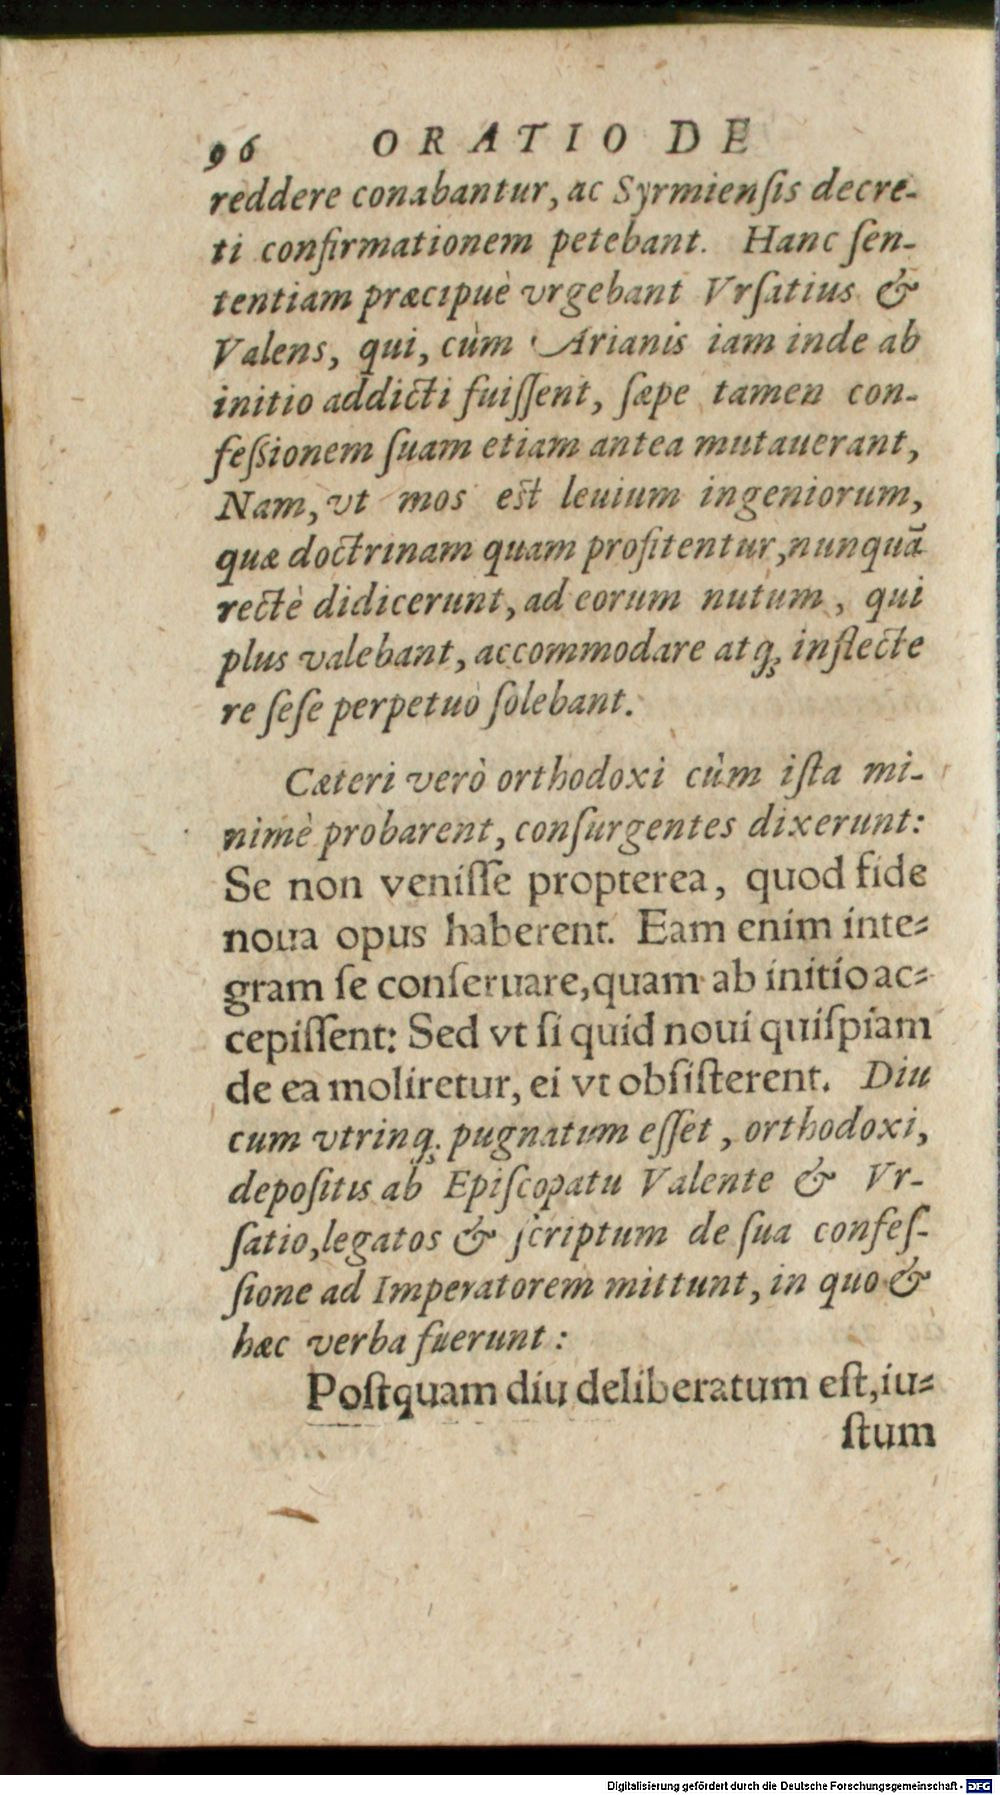 96 ORATIO DE
reddere conabantur, ac Syrmienſis decre-
ti confirmationem petebant. Hanc ſen-
tentiam præcipuè vrgebant Vrſatius &
Valens, qui, cùm Arianis iam inde ab
initio addicti fuiſſent, ſæpe tamen con-
feſsionem ſuam etiam antea mutauerant,
Nam, vt mos est leuium ingeniorum,
quæ doctrinam quam profitentur, nunquā
rectè didicerunt, ad eorum nutum, qui
plus valebant, accommodare atq; inflecte
re ſeſe perpetuò ſolebant.
Cæteri verò orthodoxi cùm iſta mi-
nimè probarent, conſurgentes dixerunt:
Se non veniſſe propterea, quod fide
noua opus haberent. Eam enim inte-
gram ſe conſeruare, quam ab initio ac-
cepiſſent: Sed vt ſi quid noui quiſpiam
de ea moliretur, ei vt obſiſterent. Diu
cum vtrinq; pugnatum eſſet, orthodoxi,
depoſitis ab Epiſcopatu Valente & Vr-
ſatio, legatos & ſcriptum de ſua confeſ-
ſione ad Imperatorem mittunt, in quo &
hæc verba fuerunt:
Poſtquam diu deliberatum eſt, iu-
ſtum
Digitalisierung gefördert durch die Deutsche Forschungsgemeinschaft - DFG